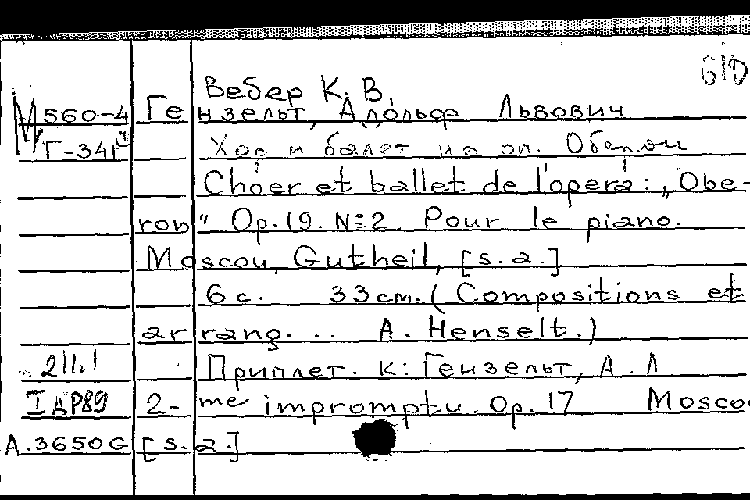 Вебер К. В.
М 560-4 Гензельт, Адольф Львович
Г-341 Хор и балет из оп. Оберон
Choer et ballet de l'opera: „Obe-
ron" Op. 19. №2. Pour le piano.
Moscou, Gutheil, [s. a.]
6 с. 33 см. (Compositions et
arrang. ... A. Henselt.)
Приплет. к: Гензельт, А. Л
I др89 2-me impromptu. Op. 17 Moscо
А.3650G [s. a.]